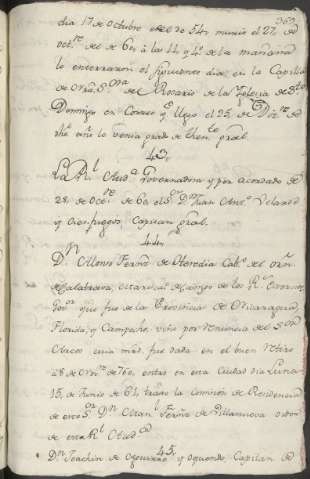 363
dia 17 de octubre de 54, murio el 27, de
oct.re de de 60, à las 11 y 4.o de la mañana
lo enterraron el siguiente dia, en la Capilla
de Nra. S.ra del Rosario de la Yglecia de S.to
Domingo, en Correo q.e llego el 25 de Dic.re de
dho año le venia grado de Then.te gral.
43.
La R.l Aud.a Governadora, y por acordado de
28, de Oct.re de 60, el S.r D.n Juan de Velasco
y Cienfuegos, Capitan gral.
44.
D.n Alonso Fern.z de Heredia Cab.o del orn.
de Calatrava, Mariscal de Campo de los R.s Exercitos,
Gov.or que fue de la Provincia de Nicaragua,
Florida, y Campeche, vino por renuncia del S.or
Arcos cuia mrd. fue dada en el buen Retiro
28 de Nov.re de 760, entro en esta Ciudad dia Lunes
15, de Junio de 61, traxo la comision de Residencia
de este S.or D.n Man.l Fern.z de Villanueva oidor
de esta R.l Aud.a
45.
D.n Joachin de Aguirre y Oquendo, Capitan de